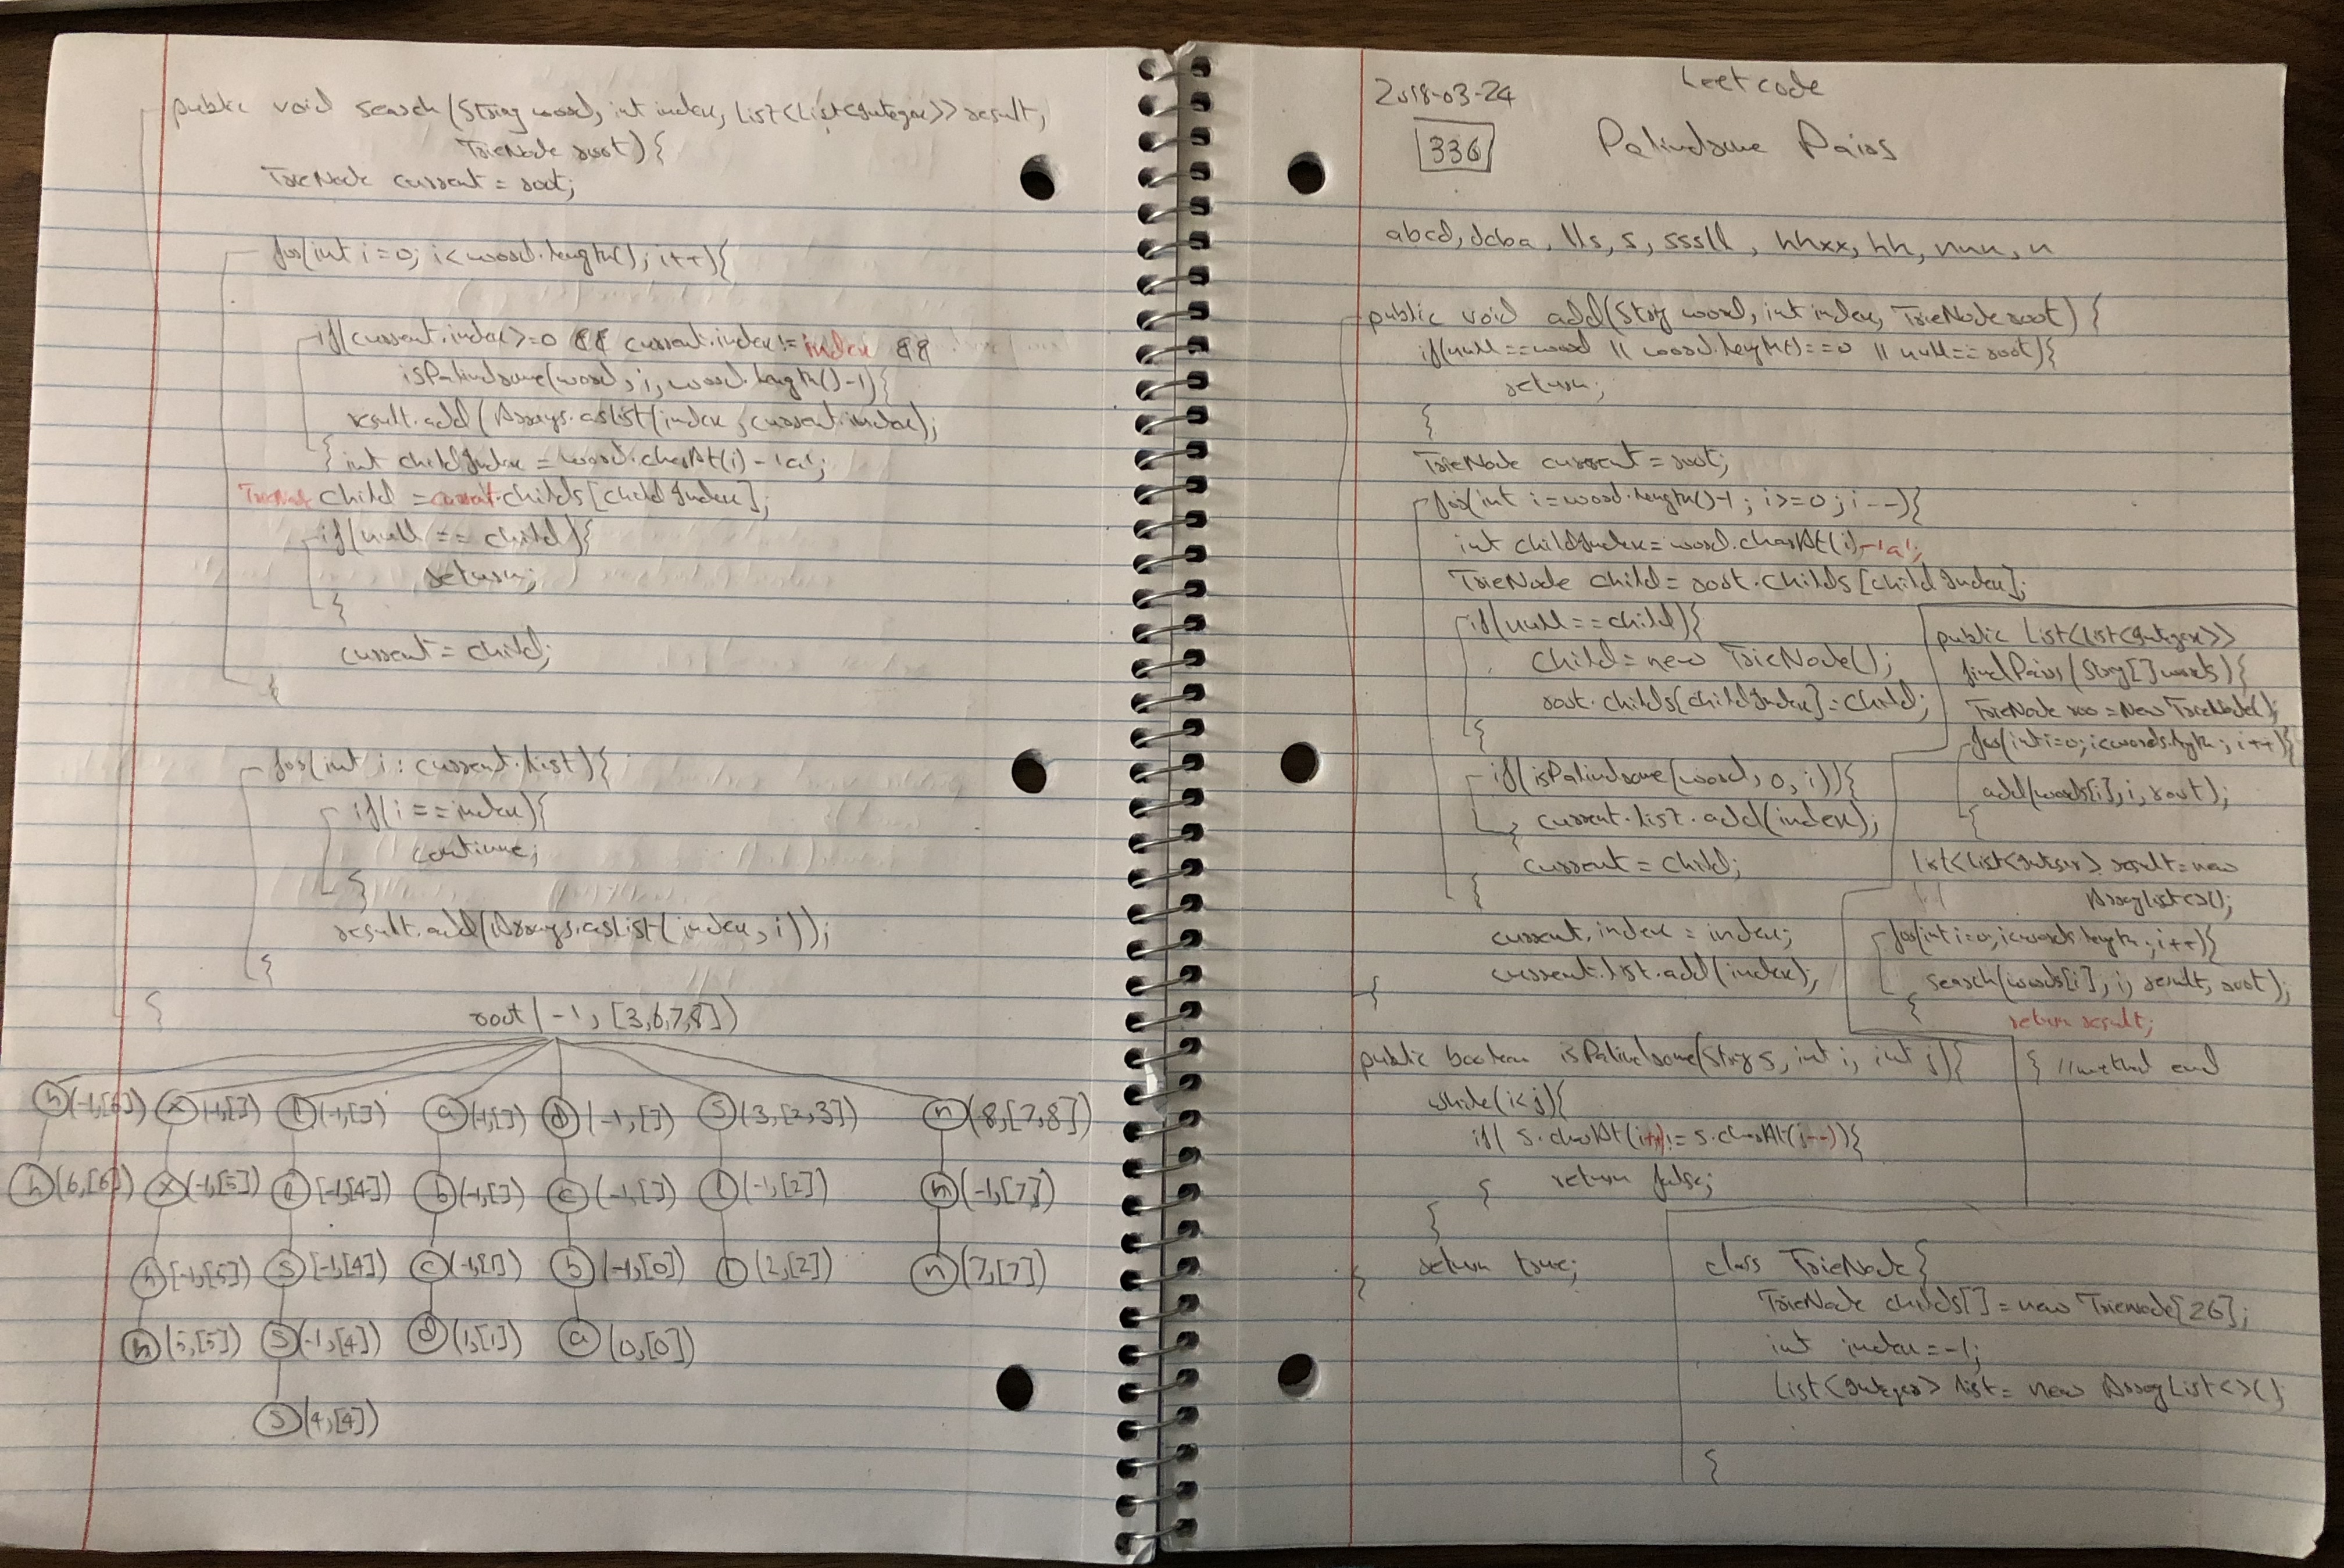 public void search(String word, int index, List<List<Integer>> result,
TrieNode root){
TrieNode current = root;
for(int i=0; i<word.length(); i++){
if(current.index>=0 && current.index!=index &&
isPalindrome(word, i, word.length()-1){
result.add(Arrays.asList(index, current.index);
} int childIndex = word.charAt(i)-'a';
TrieNode child = current.childs[childIndex];
if(null == child){
return;
}
current = child;
}
for(int i : current.list){
if(i==index){
continue;
}
result.add(Arrays.asList(index, i));
}
}
root(-1, [3,6,7,8])
h(-1,[6]) x(-1,[]) l(-1,[]) a(-1,[]) d(-1,[]) s(3,[2,3]) n(8,[7,8])
h(6,[6]) x(-1,[5]) l[-1,[4]) b(-1,[]) c(-1,[]) l(-1,[2]) n(-1,[7])
h[-1,[5]) s[-1,[4]) c(-1,[1]) b(-1,[0]) l(2,[2]) n(7,[7])
h(5,[5]) s(-1,[4]) d(1,[1]) a(0,[0])
s(4,[4])
2018-03-24 Leetcode
336 Palindrome Pairs
abcd, dcba, lls, s, sssll, hhxx, hh, nnn, n
public void add(String word, int index, TrieNode root) {
if(null==word || word.length()==0 || null==root){
return;
}
TrieNode current = root;
for(int i=word.length()-1; i>=0; i--){
int childIndex=word.charAt(i)-'a';
TrieNode child = root.childs[childIndex];
if(null==child){
child = new TrieNode();
root.childs[childIndex]=child;
}
if(isPalindrome(word, 0, i)){
current.list.add(index);
}
current = child;
}
current.index = index;
current.list.add(index);
}
public List<List<Integer>>
findPairs(String[] words){
TrieNode roo = New TrieNode();
for(int i=0; i<words.length; i++){
add(words[i], i, root);
}
List<List<Integer> result = new
ArrayList<>();
for(int i=0; i<words.length; i++){
search(words[i], i, result, root);
}
return result;
} //method end
public boolean isPalindrome(String s, int i, int j){
while(i<j){
if( s.charAt(i++)!=s.charAt(j--)){
return false;
}
}
return true;
}
class TrieNode{
TrieNode childs[] = new TrieNode[26];
int index=-1;
List<Integer> list = new ArrayList<>();
}